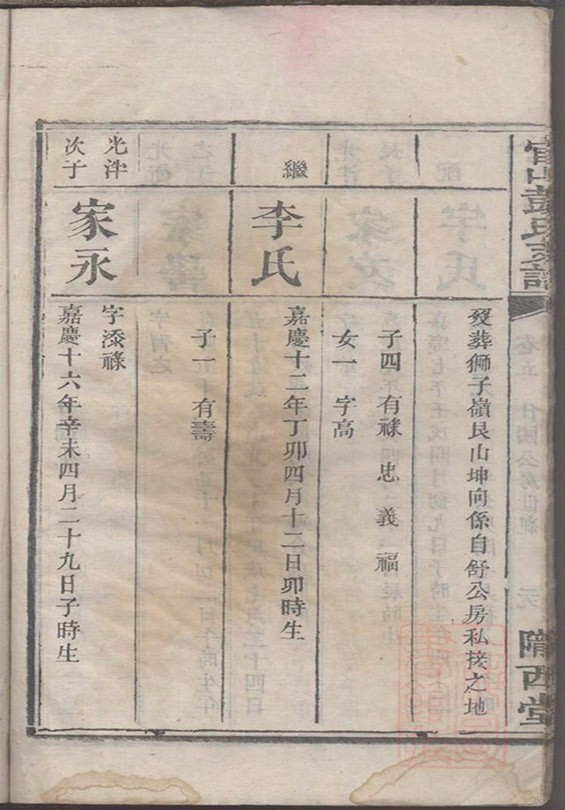 彭氏支譜
隴西堂
歿葬獅子嶺艮山坤向係自舒公房私接之地
子四 有祿 忠 義 福
女一 字高
繼
李氏
嘉慶十二年丁卯四月十二日卯時生
子一 有壽
光泮
次子
家永
字添祿
嘉慶十六年辛未四月二十九日子時生